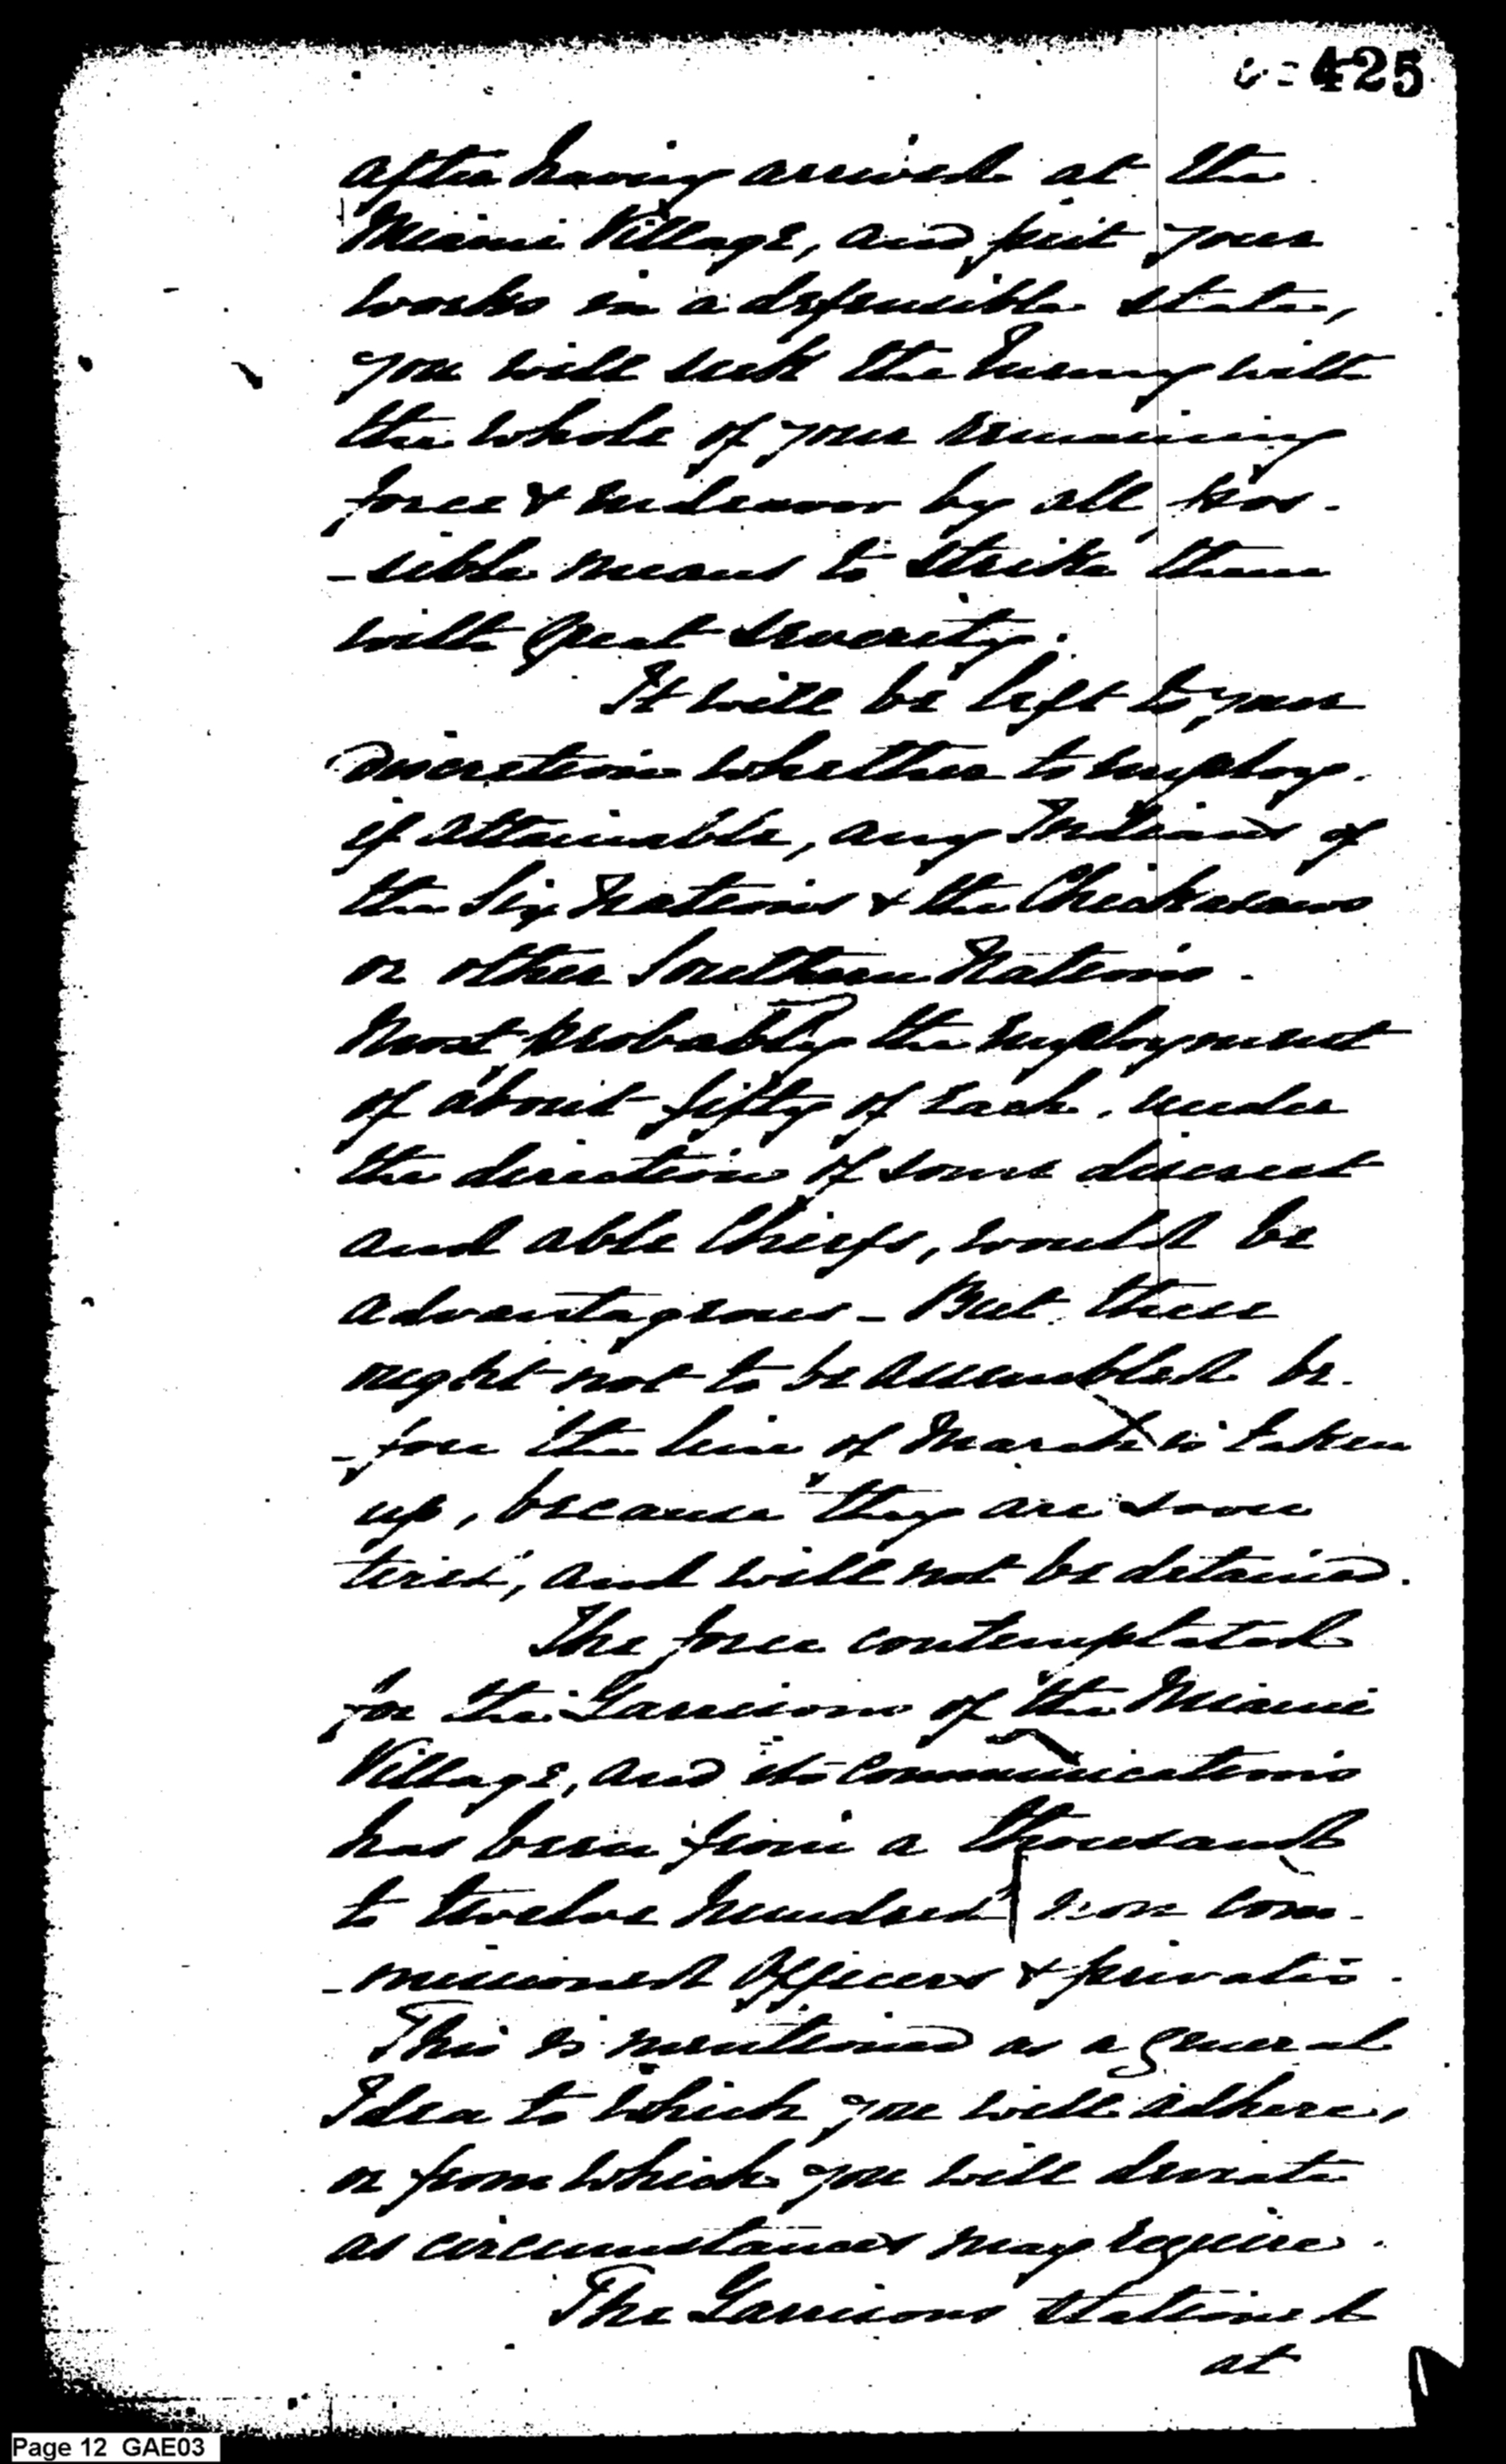 425
after having arrived at the
Miami Village, and put your
works in a defensible state,
you will seek the Enemy with
the whole of your remaining
force & endeavor by all pos-
-sible means to strike them
with great severity.
It will be left to your
discretion whether to employ,
if attainable, any Indians of
the Six Nations & the Chickasaws
or other Southern Nations.
Most probably the employment
of about fifty of each, under
the direction of some discreet
and able Chiefs, would be
advantageous - But these
ought not to be assembled be-
-fore the line of March is taken
up, because they are soon
tired, and will not be detained.
The force contemplated
for the Garrisons of the Miami
Village, and its Communications
has been from a thousand
to twelve hundred non com-
-missioned Officers & privates.
This is mentioned as a general
Idea to which you will adhere,
or from which you will deviate
as circumstances may require.
The Garrisons stationed
at
Page 12 GAE03